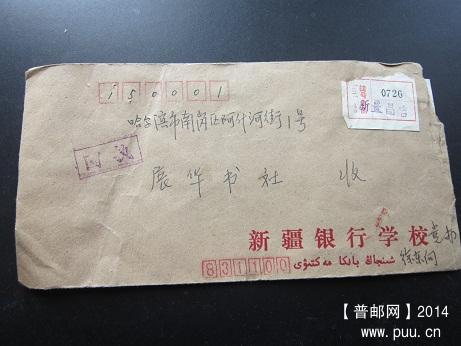 150001
0726
哈尔滨市南岗区阿什河街1号
展华书社 收
新疆银行学校
831100 شىنجاڭ بانكا مەكتىۋى
【普邮网】2014
www.puu.cn